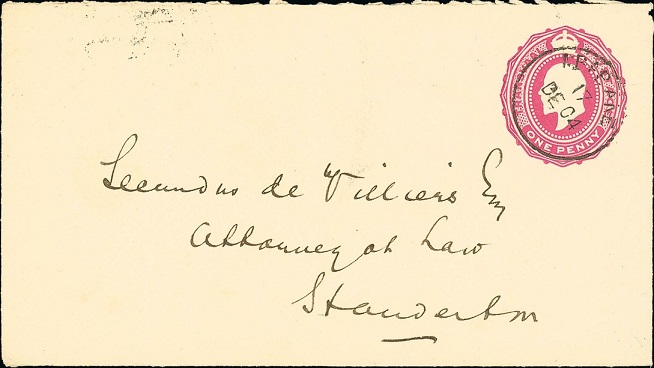 17
DE 04
ONE PENNY
Secundus de Villiers Esq
Attorney at Law
Standerton